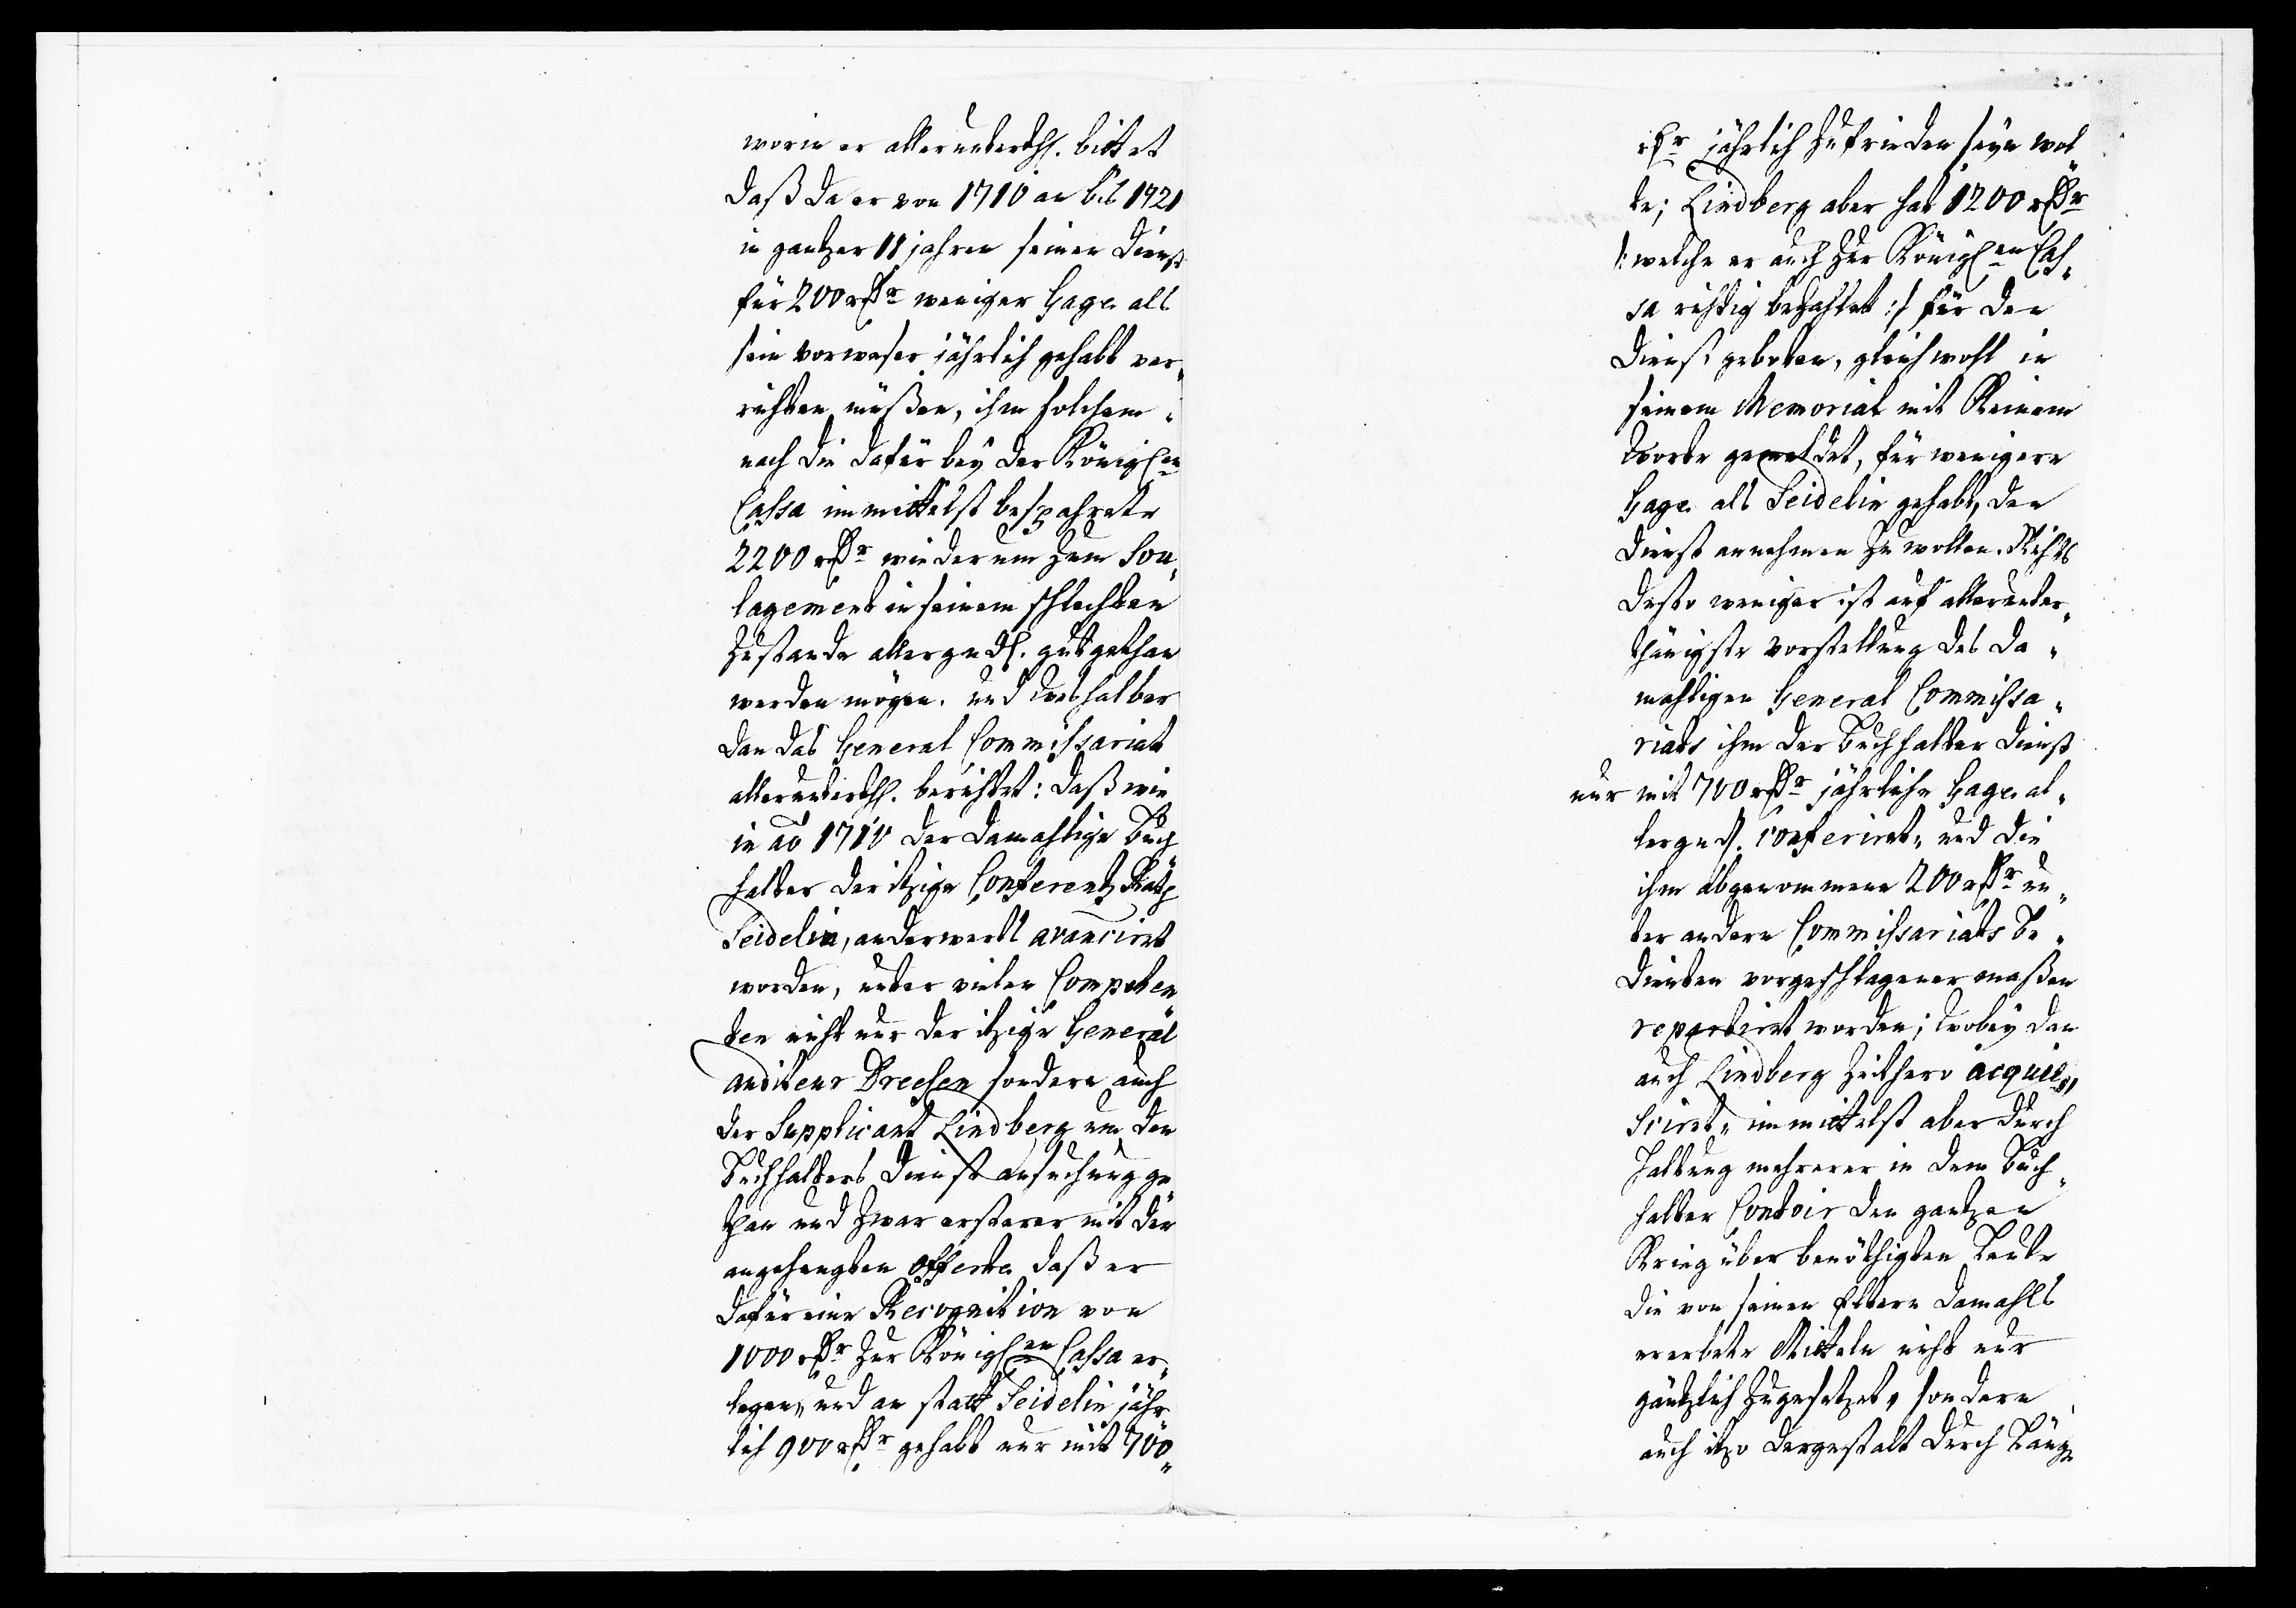 worin er allerunterthl. bittet
daß da er von 1710 an bis 1721
in gantzer 11 jahren seinen Dienst
für 200 rdr weniger Gage als
sein vorweser jährlich gehabt ver„
richten müßen, ihm solchem„
nach die dafür beÿ der Königlen
Cassa immittelst bespahrete
2200 rdr wiederum zum Sou„
lagement in seinem schlechten
Zustande allergndl. gutgethan
werden mögen. und deshalber
dan das General Commissariat
allerunterthl. berichtet: daß wie
in ao 1710 der damahlige Buch
halter der itzige Conferentz Rath
Seidelin, anderwerts avanciret
worden, unter vielen Competen
ten nicht nur der itzige General
auditeur Dreesen sondern auch
der Supplicant Lindberg um den
Buchhalters Dienst ansuchung ge
than und zwar ersterer mit der
angehengten Offerte daß er
dafür eine Recognition von
1000 rdr zur Königlen Cassa er„
legen, und an statt Seidelin jähr
lich 900 rdr gehabt nur mit 700„
rdr jährlich zufrieden seÿn wol
te; Lindberg aber hat 1200 rdr
/: welche er auch zur Königlen Cas„
sa richtig bezahlet :/ für den
Dienst geboten, gleichwohl in
seinem Memorial mit Keinem
Worte gemeldet, für wenigere
Gage als Seidelin gehabt, den
Dienst annehmen zu wollen. Nichts
desto weniger ist auf allerunter„
thänigste vorstellung des da„
mahligen General Commissa„
riats ihm der Buchhalter Dienst
nur mit 700 rdr jährliche Gage al„
lergndl. conferiret, und die
ihm abgenommene 200 rdr un„
ter andern Commissariats Be„
dienten vorgeschlagener maßen
repartiret worden; wobeÿ dan
auch Lindberg zeithero acquie„
sciret, immittelst aber durch
Haltung mehrerer in dem Buch„
halter Contoir den gantzen
Krieg über benöthigten Leute
die von seinen Eltern damahls
ererbete Mitteln nicht nur
gäntzlich zugesetzet, sondern
auch itzo dergestalt durch Läng„